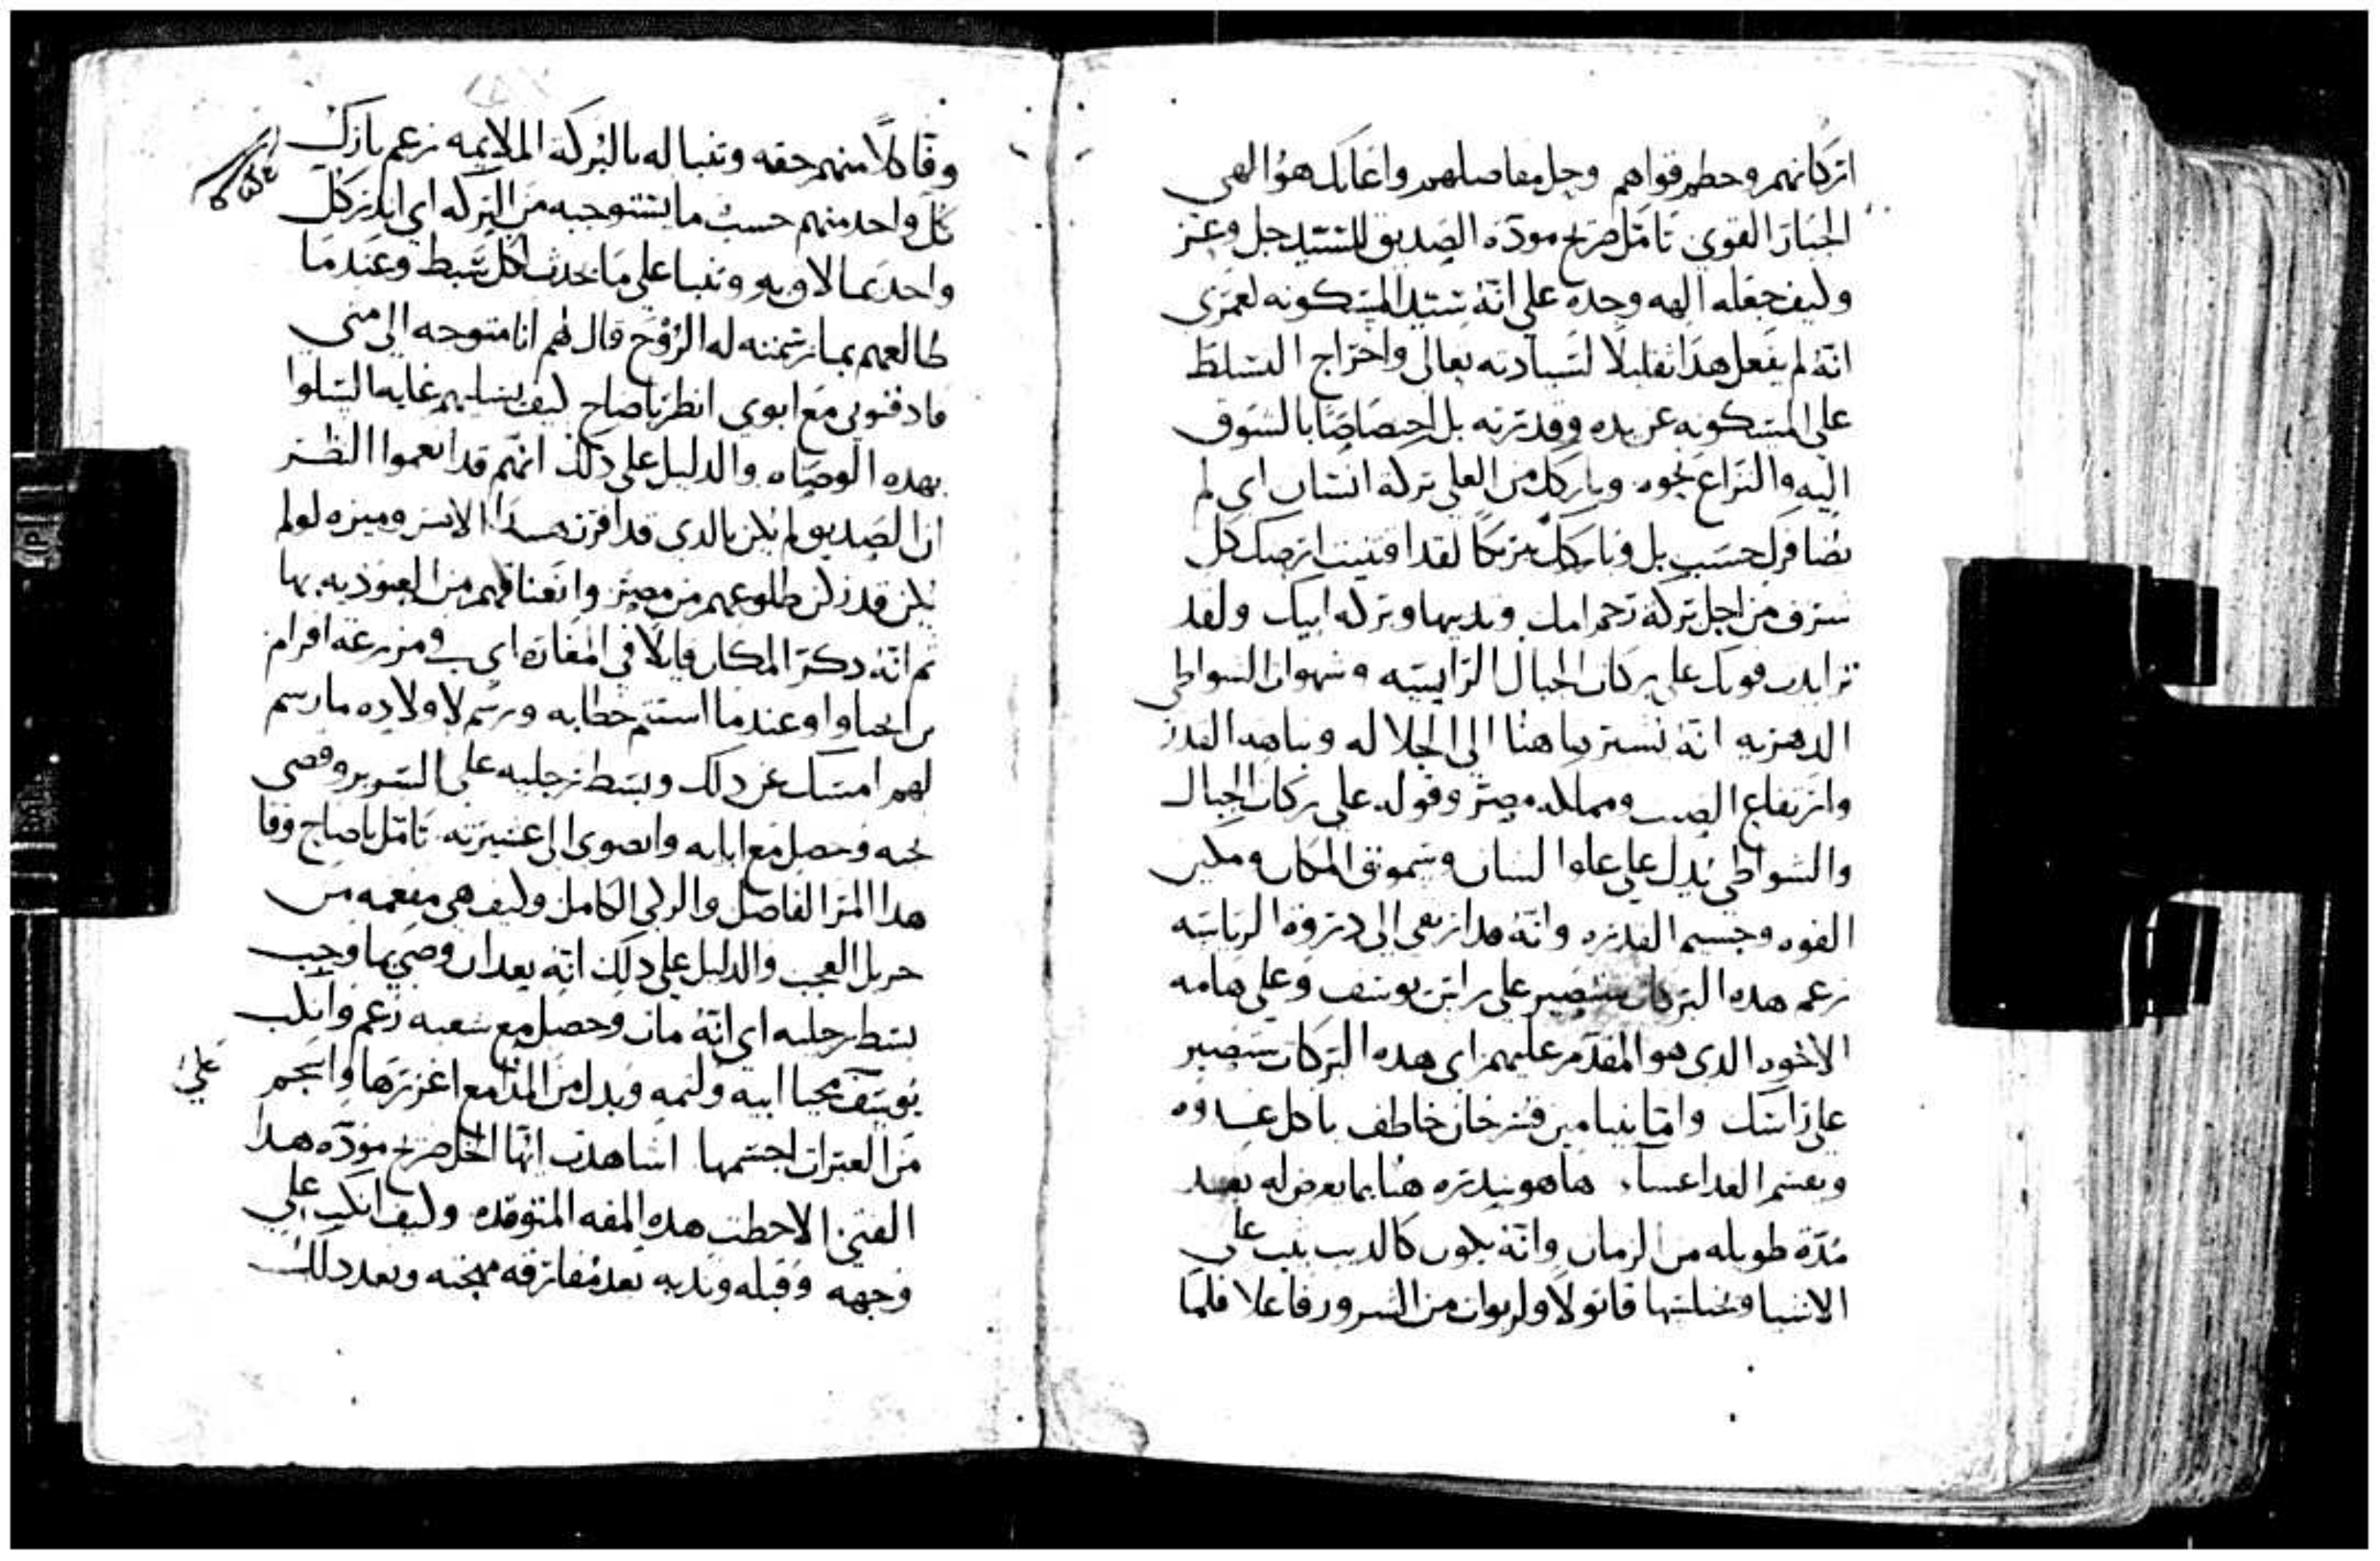 اركانهم وحطم قواهم وحل مفاصلهم واعانك هو الهي
الجبار القوي تامل صرح مودة الصديق للسيد جل وعز
وكيف جعله الهه وحده على انه سيد المسكونه لعمري
انه لم يفعل هذا تقليلا لسيادته تعالى واخراج التسلط
على المسكونه عن يده وقدرته بل اختصاصا بالشوق
اليه والنزاع نحوه وباركك من العلي بركة انسان اي لم
يضافرك حسب بل وباركك متركا لقد اقتنيت ارضك كل
شرف من اجل بركة رحم امك وثدييها وبركه ابيك ولقد
تزايدت قوتك على بركات الجبال الراسيه وشهوات الشواطي
الدهريه انه يشير هاهنا الى الجلاله وتناهد القدر
وارتفاع الصيت ومملكه مصر وقوله على بركات الجبال
والشواطي يدل على علوا الشان وسموق المكان ومكين
القوه وجسيم القدره وانه قد ارتقى الى ذروة الرياسه
زعم هذه البركات ستصير على راس يوسف وعلى هامه
الاخوه الذي هو المقدم عليهم اي هذه البركات ستصير
على راسك واما بنيامين فسرحان خاطف ياكل غدوه
ويقسم الغدا عساء هاهو ينذره هنا بما يعرض له بعد
مدة طويله من الزمان وانه يكون كالديب يثب على
الاشيا ويختلسها قاتولا ولربوات من الشرور فاعلا فلما
وفا كلا منهم حقه وتنبا له بالبركة الملايمه زعم بارك
كل واحد منهم حسب ما يستوجبه من البركه اي انذر كل
واحد بما لاق به وتنبا على ما يحدث لكل سبط وعندما
طالعهم بما رسمته له الروح قال لهم انا متوجه الى متى
فادفنوني مع ابوي انظر يا صاح كيف يسليهم غاية السلوا
بهذه الوصاه والدليل على ذلك انهم قد انعموا النظر
ان الصديق لم يكن بالذي قد افرز هذا الامر وميزه لو لم
يكن قد زكن طلوعهم من مصر وانعتاقهم من العبوديه بها
ثم انه ذكر المكان قايلا في المغارة اي في مزرعة افرام
بن الحتاوا وعندما استتم خطابه ورسم لاولاده ما رسم
لهم امسك عن ذلك وبسط رجليه على السرير وقضى
نحبه وحصل مع ابايه وانضوى الى عشيرته تامل يا صاح وفا
هذا المر الفاضل والزكي الكامل وكيف هي مفعمه من
جزيل العجب والدليل على ذلك انه بعد ان وصى بما وجب
بسط رجليه اي انه مات وحصل مع شعبه زعم وانكب
يوسف محيا ابيه ولثمه وبدل من المدامع اغزرها واسجم
على
من العبرات اجسمها اشاهدت ايها الخل صرح مودة هذا
الفتى الاحظت هذه المقه المتوقده وكيف انكب على
وجهه وقبله وندبه بعد مفارقة مهجته وبعد ذلك